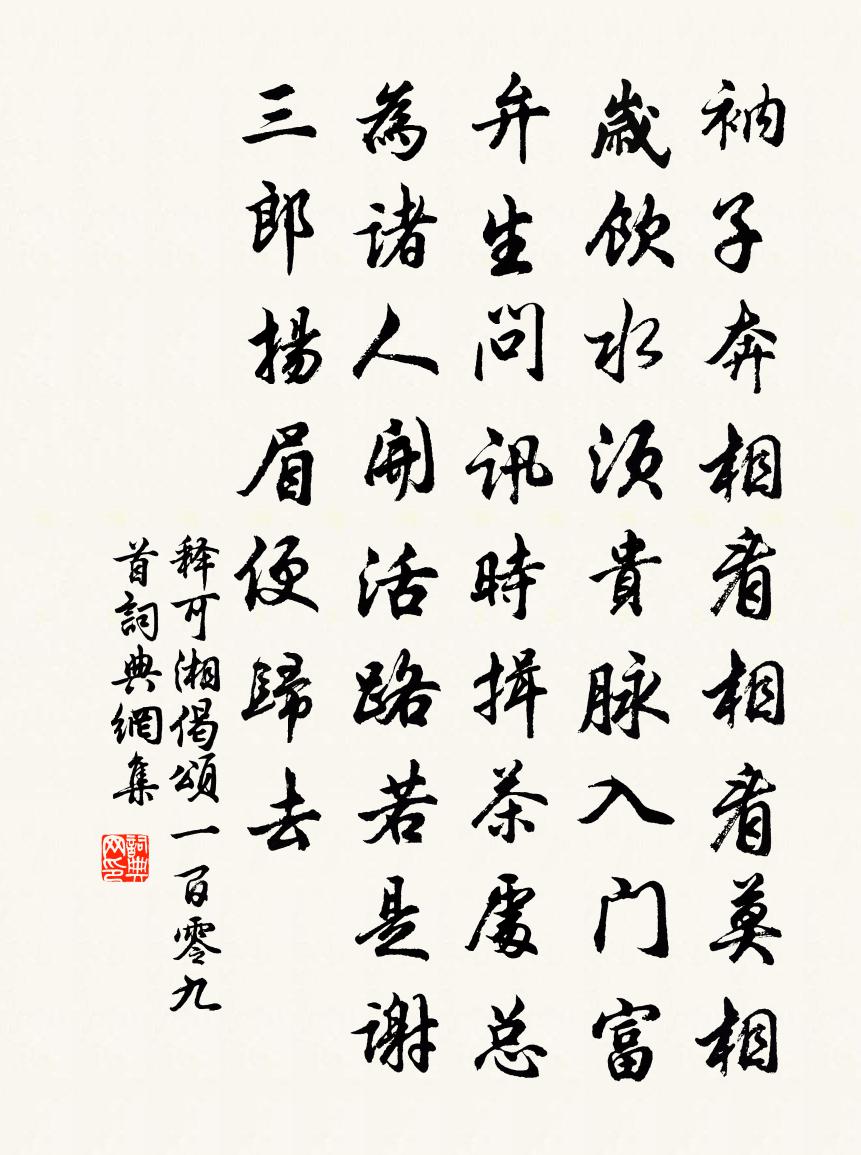 衲子奔相看相看莫相
嵗飲水須貴脉入门富
弁生問訊時揖茶處总
為諸人開活路若是謝
三郎揚眉便歸去
释可湘偈頌一百零九
首詞典網集
詞典网印